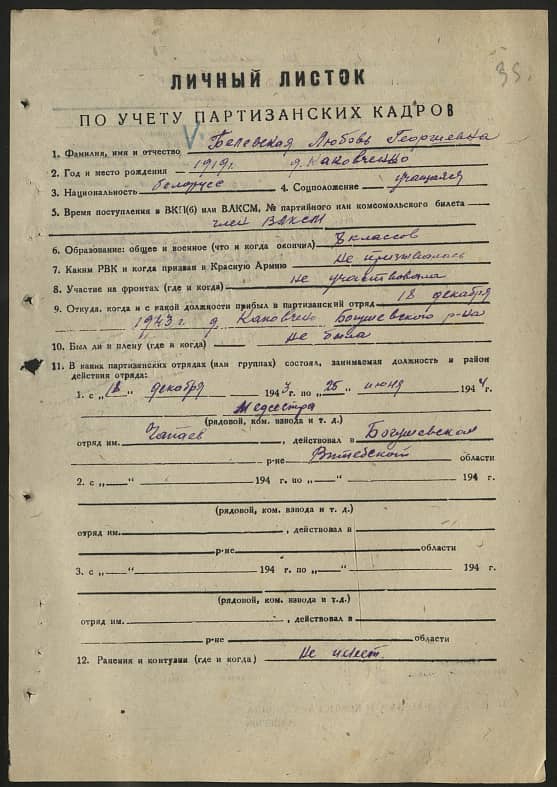 35.
ЛИЧНЫЙ ЛИСТОК
ПО УЧЕТУ ПАРТИЗАНСКИХ КАДРОВ
V
1. Фамилия, имя и отчество Белевская Любовь Георгиевна
2. Год и место рождения 1919г. д. Каковчено
3. Национальность белорусс 4. Соцположение учащаяся
5. Время поступления в ВКП(б) или ВЛКСМ, № партийного или комсомольского билета
член ВЛКСМ
6. Образование: общее и военное (что и когда окончил) классов
7. Каким РВК и когда призван в Красную Армию Не призывалась
8. Участие на фронтах (где и когда) не участвовала
9. Откуда, когда и с какой должности прибыл в партизанский отряд 18 декабря
1943 г. д. Каковчено Богушевского р-на
10. Был ли в плену (где и когда) не была
11. В каких партизанских отрядах (или группах) состоял, занимаемая должность и район
действия отряда:
1. с „18" декабря 1943 г. по „25" июня 1944 г.
Медсестра
(рядовой, ком. взвода и т. д.)
отряд им. Чапаев, действовал в Богушевском
р-не Витебской области
2. с „ " 194 г. по „ " 194 г.
(рядовой, ком. взвода и т. д.)
отряд им. , действовал в
р-не области
3. с „ " 194 г. по „ " 194 г.
(рядовой, ком. взвода и т.д.)
отряд им. , действовал в
р-не области
12. Ранения и контузии (где и когда) Не имеет.